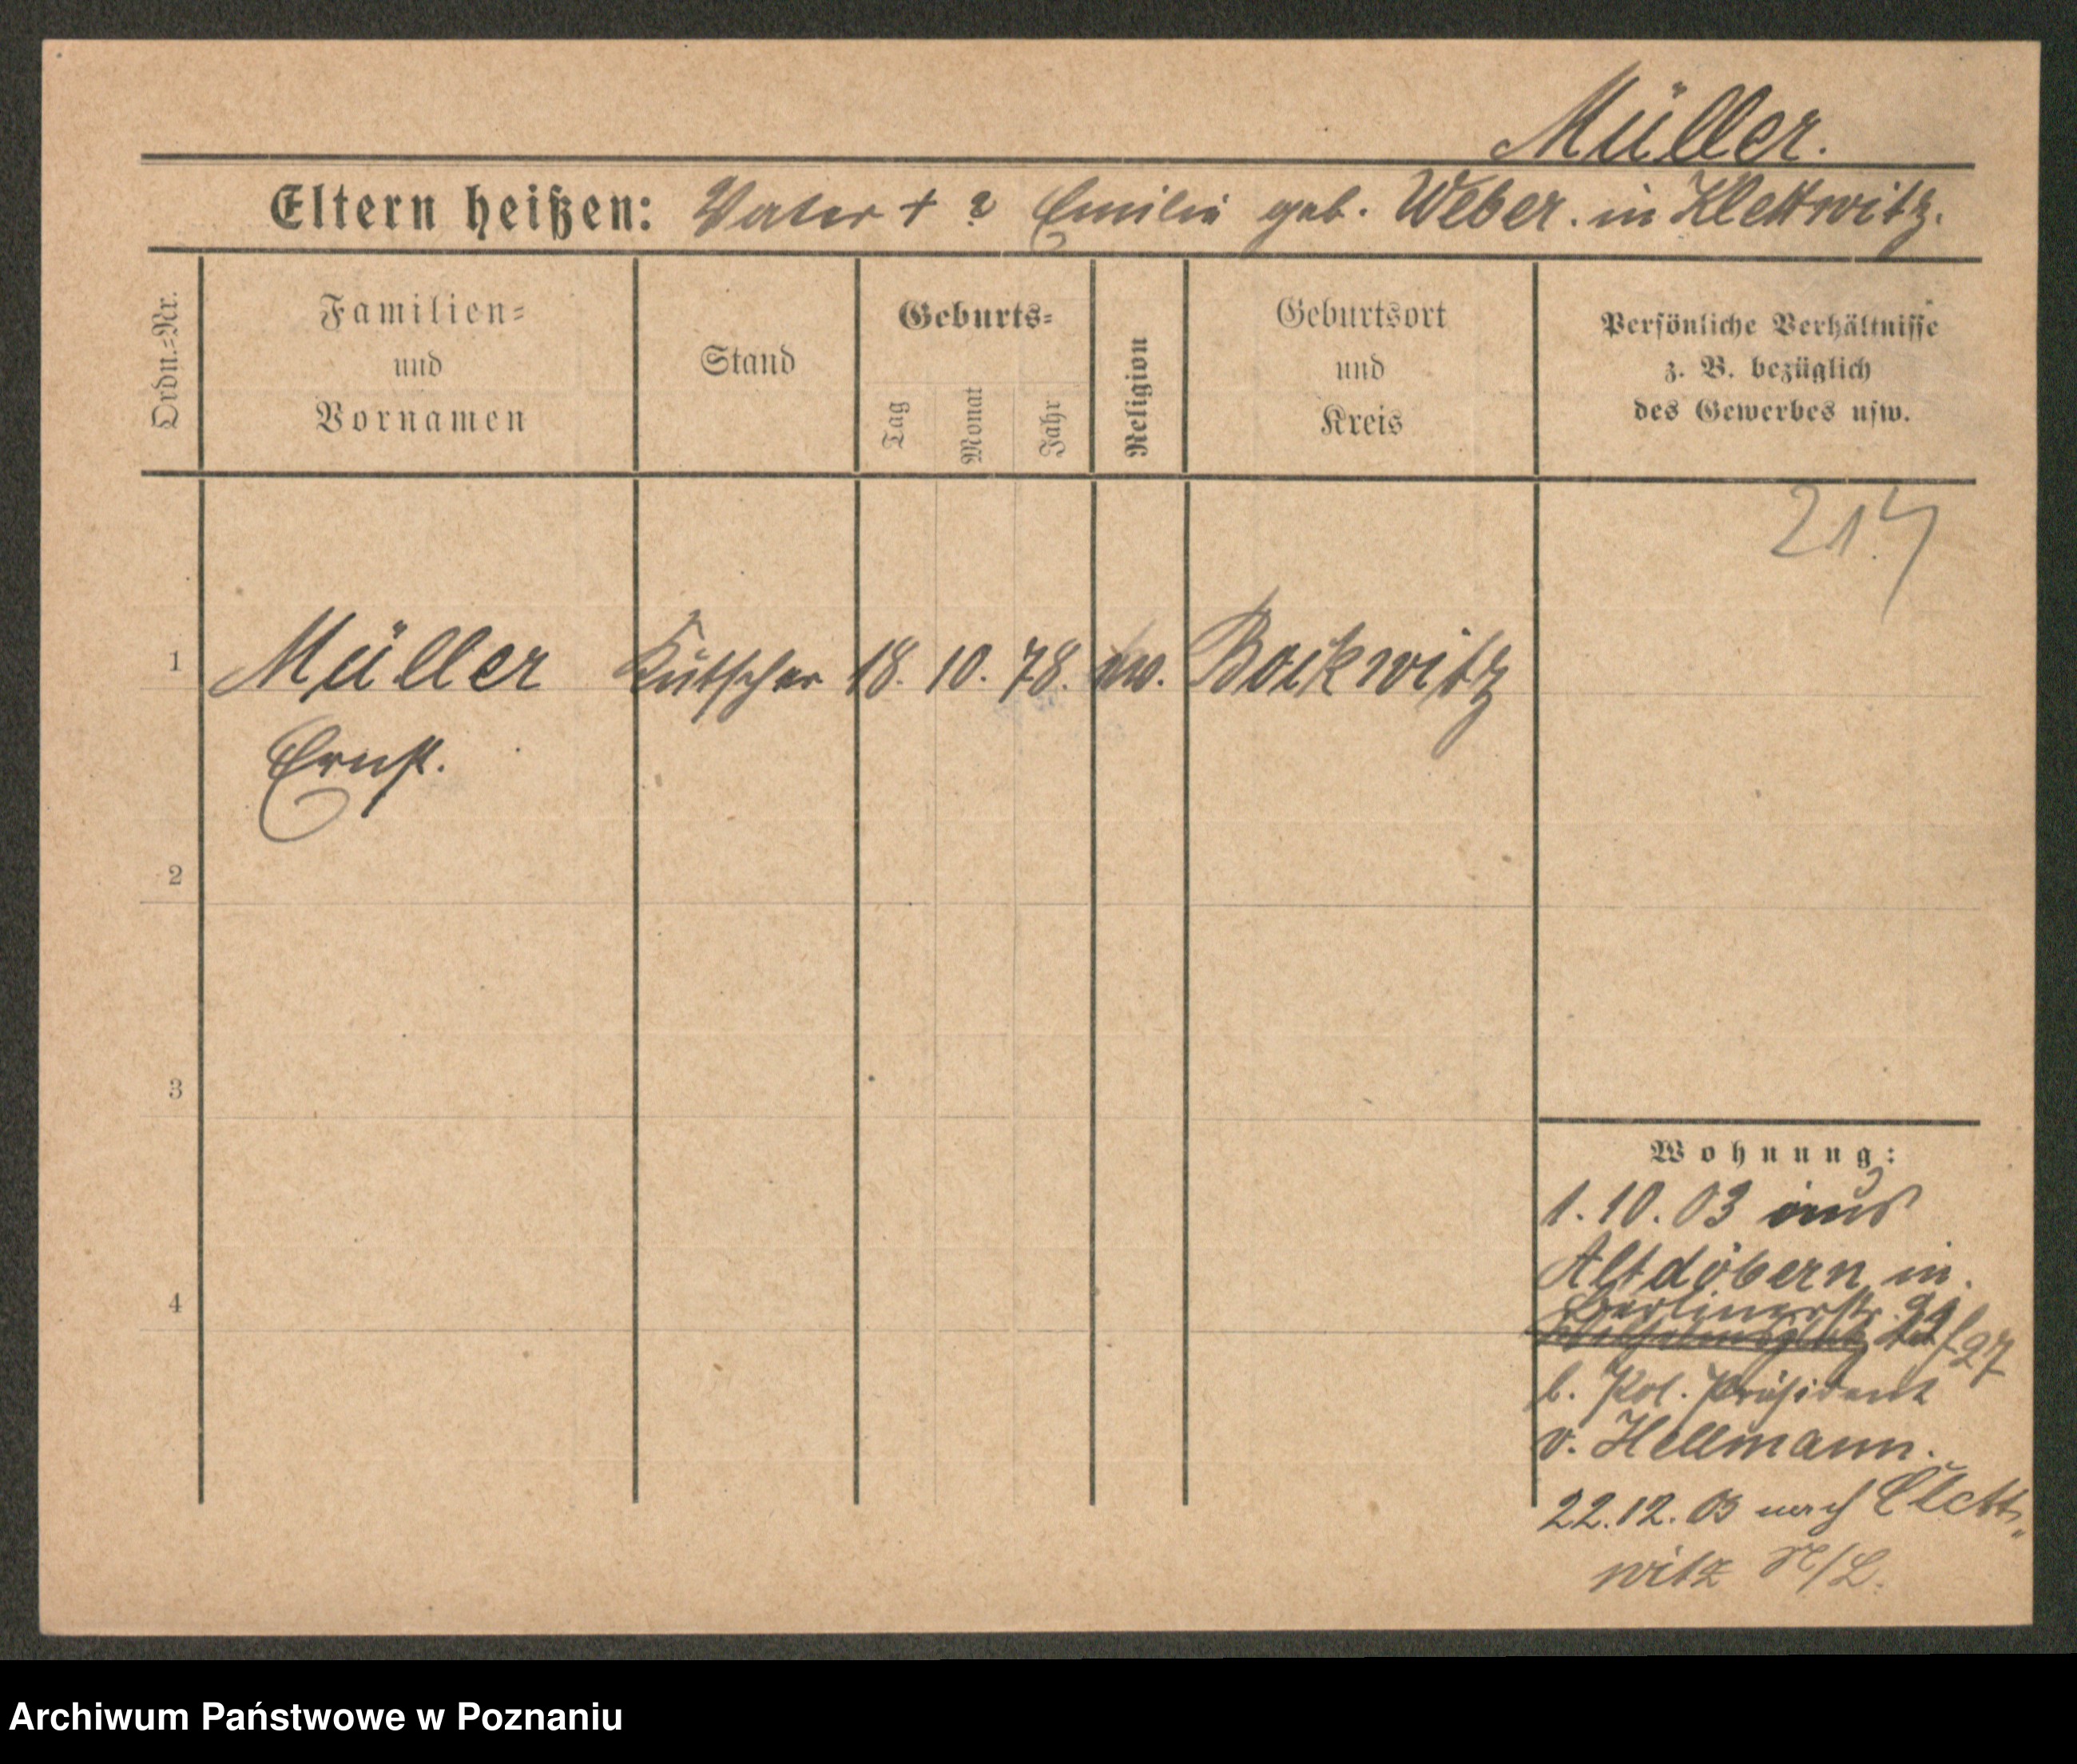 Müller.
Eltern heißen: Vater + ? Emilie geb. Weber. in Klettwitz.
Ordn.=Nr.
Familien=
und
Vornamen
Stand
Geburts=
Tag
Monat
Jahr
Religion
Geburtsort
und
Kreis
Persönliche Verhältnisse
z. B. bezüglich
des Gewerbes usw.
1
Müller Kutscher 18. 10. 78. Bockwitz
Ernst.
2
3
4
Wohnung:
1.10.03 aus
Altdöbern in.
Berlinerstr.
b. Pol. Präsident
v. Hellmann.
22.12.03 nach Clett„
witz N/L.
Archiwum Państwowe w Poznaniu